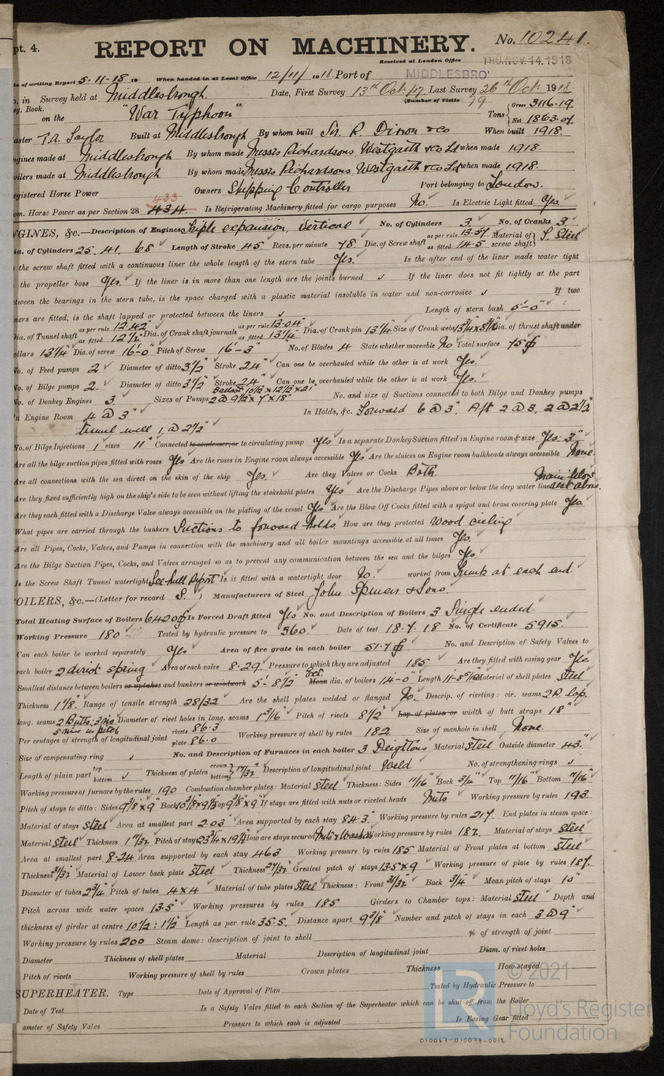 pt. 4.
REPORT ON MACHINERY. No. 10241.
Received at London Office THU. NOV. 14. 1918
of writing Report 5-11-18 When handed in at Local Office 12/11/1918 Port of MIDDLESBRO'
in Survey held at Middlesbrough Date, First Survey 13th Oct 17 Last Survey 26th Oct 1918
Book. (Number of Visits 79
on the "War Typhoon" Tons Gross 3116.19 Net 1863.07
aster T.A. Taylor Built at Middlesbrough By whom built Sir R. Dixon & Co When built 1918.
ngines made at Middlesbrough By whom made Messrs Richardsons Westgarth & Co Ld when made 1918.
oilers made at Middlesbrough By whom made Messrs Richardsons Westgarth & Co Ld when made 1918.
egistered Horse Power Owners Shipping Controller Port belonging to London.
433
om. Horse Power as per Section 28 434 Is Refrigerating Machinery fitted for cargo purposes No. Is Electric Light fitted Yes.
NGINES, &c.—Description of Engines Triple expansion, vertical No. of Cylinders 3 No. of Cranks 3
ia. of Cylinders 25. 41. 68 Length of Stroke 45 Revs. per minute 78. Dia. of Screw shaft as per rule 13.57 as fitted 14.5 Material of screw shaft S. Steel
the screw shaft fitted with a continuous liner the whole length of the stern tube Yes. Is the after end of the liner made water tight
the propeller boss Yes. If the liner is in more than one length are the joints burned ✓ If the liner does not fit tightly at the part
tween the bearings in the stern tube, is the space charged with a plastic material insoluble in water and non-corrosive ✓ If two
ners are fitted, is the shaft lapped or protected between the liners ✓ Length of stern bush 5'-0"
Dia. of Tunnel shaft as per rule 12.42" as fitted 12½" Dia. of Crank shaft journals as per rule 13.04" as fitted 13¼" Dia. of Crank pin 13¼" Size of Crank webs Dia. of thrust shaft under
ollars 13¼" Dia. of screw 16-0" Pitch of Screw 16'-3" No. of Blades 4 State whether moveable No Total surface 75
No. of Feed pumps 2 Diameter of ditto 3½" Stroke 24" Can one be overhauled while the other is at work Yes.
No. of Bilge pumps 2 Diameter of ditto 3½" Stroke 24" Can one be overhauled while the other is at work Yes.
No. of Donkey Engines 3 Sizes of Pumps Ballast 10½" x 12½" x 21" 2 @ 9½" x 7" x 18" No. and size of Suctions connected to both Bilge and Donkey pumps
n Engine Room 4 @ 3" In Holds, &c. Forward 6 @ 3. Aft 2 @ 3, 2 @ 2½"
tunnel well 1 @ 2½"
No. of Bilge Injections 1 sizes 11" Connected to condenser, or to circulating pump Yes Is a separate Donkey Suction fitted in Engine room & size Yes: 3"
Are all the bilge suction pipes fitted with roses Yes Are the roses in Engine room always accessible Yes Are the sluices on Engine room bulkheads always accessible None.
Are all connections with the sea direct on the skin of the ship Yes. Are they Valves or Cocks Both
Are they fixed sufficiently high on the ship's side to be seen without lifting the stokehold plates Yes Are the Discharge Pipes above or below the deep water line Main below rest above.
Are they each fitted with a Discharge Valve always accessible on the plating of the vessel Yes Are the Blow Off Cocks fitted with a spigot and brass covering plate Yes
What pipes are carried through the bunkers Suctions to forward holds. How are they protected Wood ceiling
Are all Pipes, Cocks, Valves, and Pumps in connection with the machinery and all boiler mountings accessible at all times Yes.
Are the Bilge Suction Pipes, Cocks, and Valves arranged so as to prevent any communication between the sea and the bilges Yes.
Is the Screw Shaft Tunnel watertight See hull Report Is it fitted with a watertight door No. worked from Trunk at each end
OILERS, &c.—(Letter for record S.) Manufacturers of Steel John Spencer & Sons
Total Heating Surface of Boilers 6420 Is Forced Draft fitted Yes No. and Description of Boilers 3 Single ended
Working Pressure 180 Tested by hydraulic pressure to 360 Date of test 18.7.18 No. of Certificate 5915.
Can each boiler be worked separately Yes Area of fire grate in each boiler 51.7 No. and Description of Safety Valves to
each boiler 2 direct spring Area of each valve 8.29 Pressure to which they are adjusted 185 Are they fitted with easing gear Yes
Smallest distance between boilers or uptakes and bunkers or woodwork 5'-8½" Mean dia. of boilers 14-0" Length 11-8 Material of shell plates Steel
Thickness 1⅛ Range of tensile strength 28/32 Are the shell plates welded or flanged No. Descrip. of riveting: cir. seams 2R. lap,
long. seams 2 Butts, 3 riv 5 rivs in pitch Diameter of rivet holes in long. seams 1 3/16" Pitch of rivets 8½" Lap of plates or width of butt straps 18"
Per centages of strength of longitudinal joint rivets 86.3 plate 86.0 Working pressure of shell by rules 182 Size of manhole in shell None.
Size of compensating ring ✓ No. and Description of Furnaces in each boiler 3 Deightons Material Steel Outside diameter 43"
Length of plain part top bottom Thickness of plates crown bottom 17/32" Description of longitudinal joint Weld No. of strengthening rings ✓
Working pressure of furnace by the rules 190 Combustion chamber plates: Material Steel Thickness: Sides 11/16" Back 5/8" Top 11/16" Bottom 11/16"
Pitch of stays to ditto: Sides 9⅛ x 9" Back Top If stays are fitted with nuts or riveted heads Nuts Working pressure by rules 193.
Material of stays Steel Area at smallest part 2.03 Area supported by each stay 84.3 Working pressure by rules 217. End plates in steam space:
Material Steel Thickness 1 1/32" Pitch of stays How are stays secured Nuts & Washers Working pressure by rules 187. Material of stays Steel
Area at smallest part 8.24 Area supported by each stay 463 Working pressure by rules 185 Material of Front plates at bottom Steel
Thickness 31/32" Material of Lower back plate Steel Thickness 27/32" Greatest pitch of stays 13.5 x 9 Working pressure of plate by rules 187.
Diameter of tubes 2¾" Pitch of tubes 4 x 4 Material of tube plates Steel Thickness: Front 31/32 Back ¾" Mean pitch of stays 10"
Pitch across wide water spaces 13.5" Working pressures by rules 185 Girders to Chamber tops: Material Steel Depth and
thickness of girder at centre 10½ : 1½" Length as per rule 35.5. Distance apart 9⅜" Number and pitch of stays in each 3 @ 9"
Working pressure by rules 200 Steam dome: description of joint to shell % of strength of joint
Diameter Thickness of shell plates Material Description of longitudinal joint Diam. of rivet holes
Pitch of rivets Working pressure of shell by rules Crown plates Thickness How stayed
SUPERHEATER. Type Date of Approval of Plan Tested by Hydraulic Pressure to
Date of Test Is a Safety Valve fitted to each Section of the Superheater which can be shut off from the Boiler
ameter of Safety Valve Pressure to which each is adjusted Is Easing Gear fitted
© 2021
Lloyd's Register
Foundation
010067-010078-0012